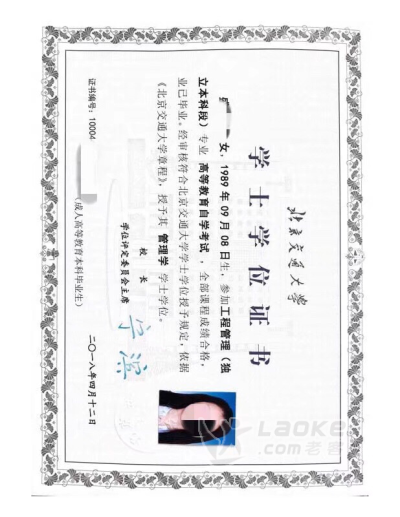 北京交通大学
学士学位证书
女，1989年09月08日生，参加工程管理（独
立本科段）专业 高等教育自学考试，全部课程成绩合格，
业已毕业。经审核符合北京交通大学学士学位授予规定，依据
《北京交通大学章程》，授予其 管理学 学士学位。
校 长
学位评定委员会主席
宁滨
证书编号：10004
二〇一八年四月十二日
（成人高等教育本科毕业生）
Laoke